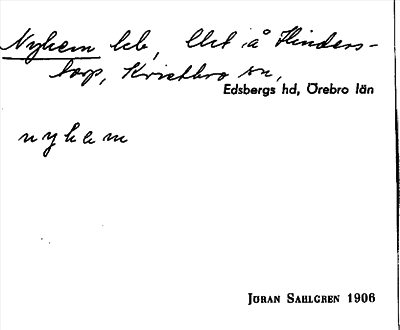 Nyhem lcb, Ulvt å Hinders-
torp, Kvistbro sn,
Edsbergs hd, Örebro län
nyhem
JÖRAN SAHLGREN 1906